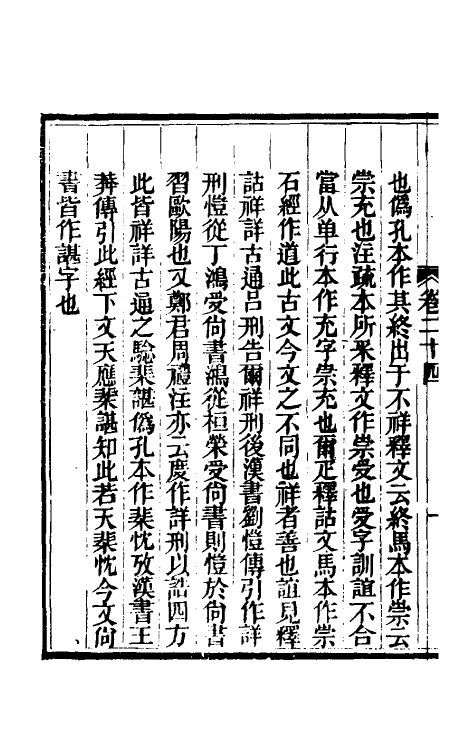 卷二十四
一
也僞孔本作其終出于不祥釋文云終馬本作崇云
崇充也注疏本所采釋文作崇受也受字訓誼不合
當从单行本作充字崇充也爾疋釋詁文馬本作崇
石經作道此古文今文之不同也祥者善也誼見釋
詁祥詳古通呂刑告爾祥刑後漢書劉愷傳引作詳
刑愷從丁鴻受尙書鴻從桓榮受尙書則愷於尙書
習歐陽也又鄭君周禮注亦云度作詳刑以詰四方
此皆祥詳古通之驗棐諶僞孔本作棐忱攷漢書王
莽傳引此經下文天應棐諶知此若天棐忱今文尙
書皆作諶字也